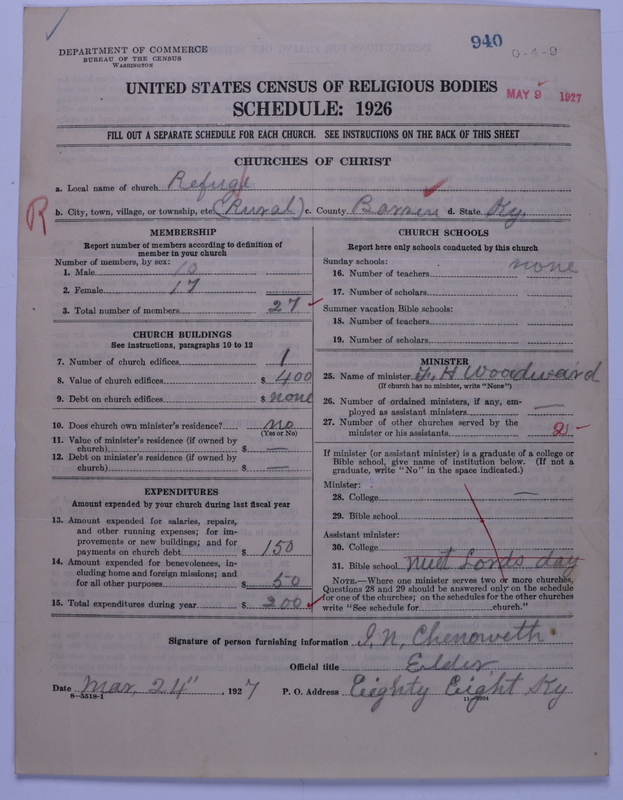 940
0-4-9
DEPARTMENT OF COMMERCE
BUREAU OF THE CENSUS
WASHINGTON
UNITED STATES CENSUS OF RELIGIOUS BODIES
MAY 9 1927
SCHEDULE: 1926
FILL OUT A SEPARATE SCHEDULE FOR EACH CHURCH. SEE INSTRUCTIONS ON THE BACK OF THIS SHEET
CHURCHES OF CHRIST
a. Local name of church Refuge
R
b. City, town, village, or township, etc. (Rural) c. County Barren d. State Ky.
MEMBERSHIP
Report number of members according to definition of
member in your church
Number of members, by sex:
1. Male 10
2. Female 17
3. Total number of members 27
CHURCH BUILDINGS
See instructions, paragraphs 10 to 12
7. Number of church edifices 1
8. Value of church edifices $ 400
9. Debt on church edifices $ none
10. Does church own minister's residence? no
(Yes or No)
11. Value of minister's residence (if owned by
church) $ —
12. Debt on minister's residence (if owned by
church) $ —
EXPENDITURES
Amount expended by your church during last fiscal year
13. Amount expended for salaries, repairs,
and other running expenses; for im-
provements or new buildings; and for
payments on church debt $ 150
14. Amount expended for benevolences, in-
cluding home and foreign missions; and
for all other purposes 50
15. Total expenditures during year $ 200
CHURCH SCHOOLS
Report here only schools conducted by this church
Sunday schools: none
16. Number of teachers
17. Number of scholars
Summer vacation Bible schools:
18. Number of teachers
19. Number of scholars
MINISTER
25. Name of minister F. H Woodward
(If church has no minister, write "None")
26. Number of ordained ministers, if any, em-
ployed as assistant ministers —
27. Number of other churches served by the
minister or his assistants
If minister (or assistant minister) is a graduate of a college or
Bible school, give name of institution below. (If not a
graduate, write "No" in the space indicated.)
Minister:
28. College —
29. Bible school
Assistant minister:
30. College
31. Bible school meet Lords day
NOTE.—Where one minister serves two or more churches,
Questions 28 and 29 should be answered only on the schedule
for one of the churches; on the schedules for the other churches
write "See schedule for church."
Signature of person furnishing information I. N. Chenoweth
Official title Elder
Date Mar. 24", 1927 P. O. Address Eighty Eight Ky
8-5518-1